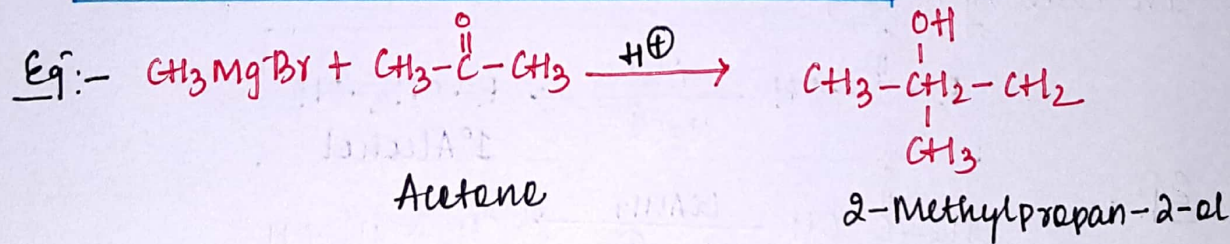 Eg:- CH3MgBr + CH3-C-CH3 H⊕ → CH3-CH2-CH2
O
OH
CH3
Acetone
2-Methylpropan-2-ol